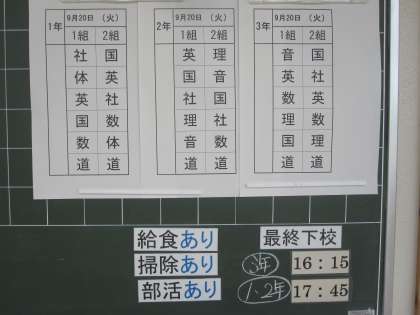 1年 9月20日 (火)
1組 2組
社 国
体 英
英 社
国 数
数 体
道 道
2年 9月20日 (火)
1組 2組
英 理
国 音
社 国
理 社
音 数
道 道
3年 9月20日 (火)
1組 2組
音 国
英 社
数 英
理 数
国 理
道 道
給食あり 最終下校
掃除あり 3年 16:15
部活あり 1・2年 17:45